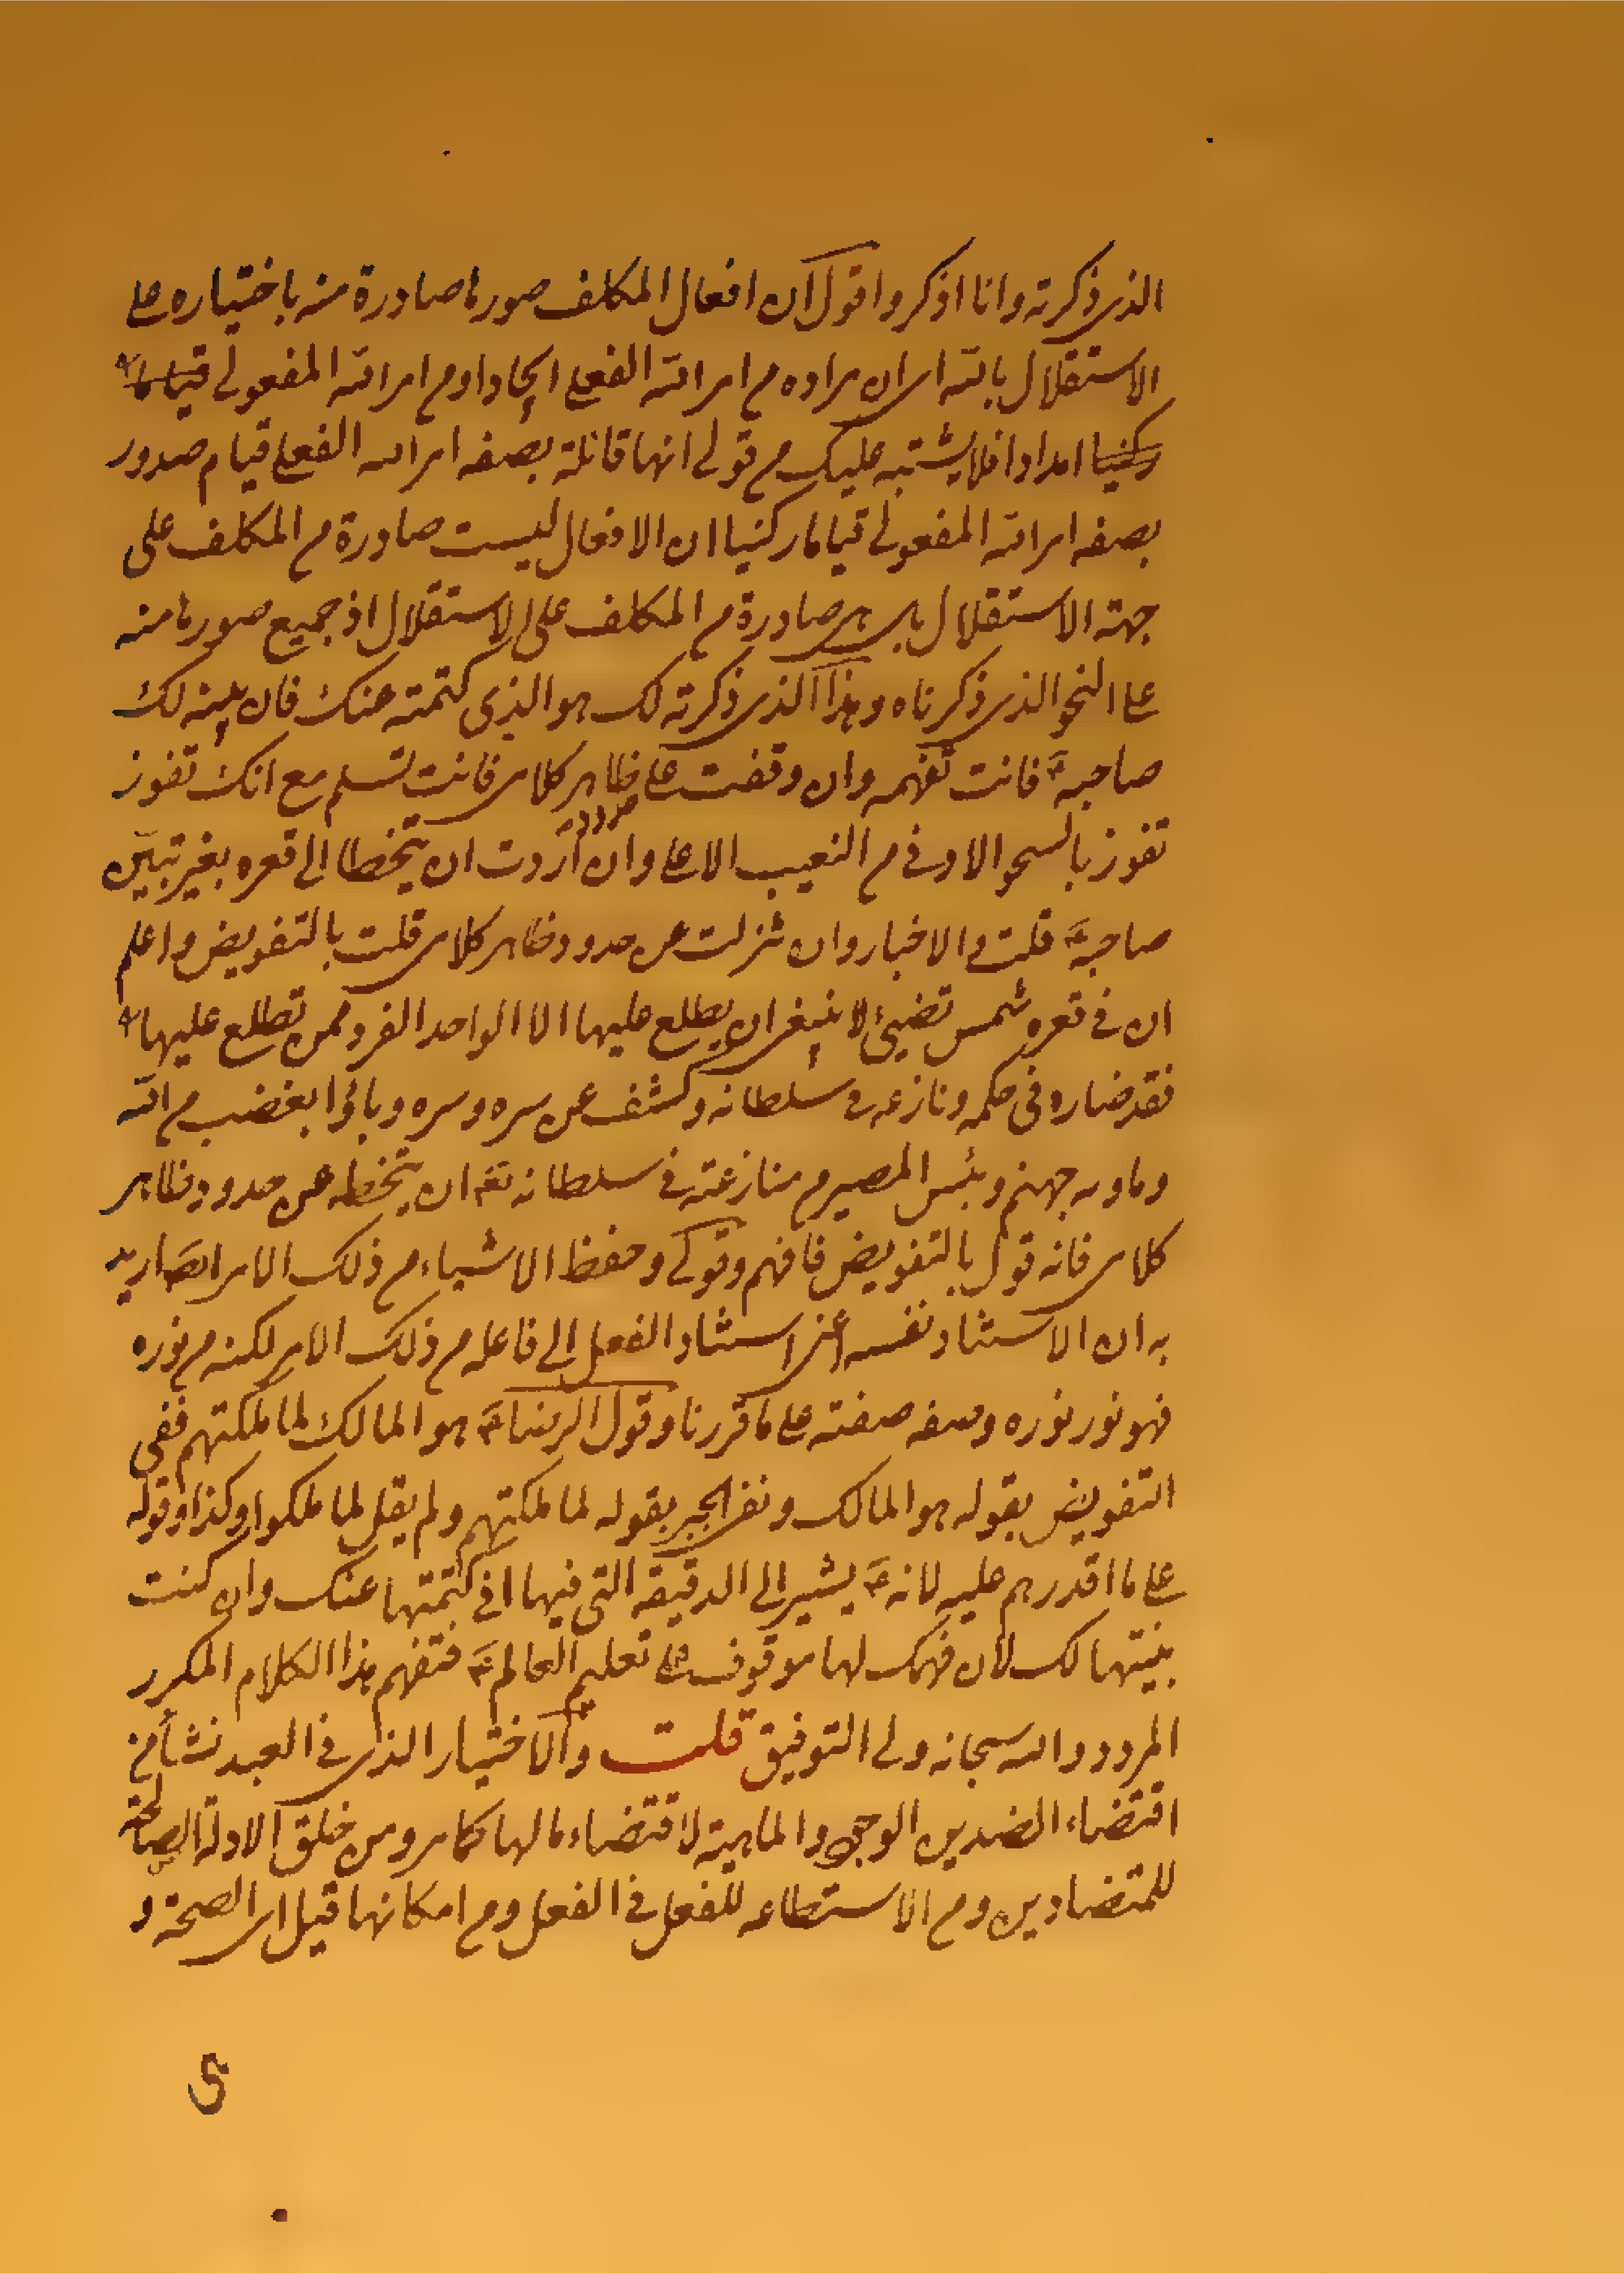 الذي ذكرته وانا اذكر واقول ان افعال المكلف صورها صادرة منه باختياره على
الاستقلال بالله اي ان مراده من امر الله الفعلي ايجادا ومن امر الله المفعولي قياما
ركنيا امدادا فلا يشتبه عليك من قولي انها قائلة بصفه امر الله الفعلي قيام صدور
بصفه امر الله المفعولي قياما ركنيا ان الافعال ليست صادرة من المكلف على
جهة الاستقلال بل هي صادرة من المكلف على الاستقلال اذ جميع صورها منه
على النحو الذي ذكرناه وهذا الذي ذكرته لك هو الذي كتمته عنك فان بينه لك
صاحبه ع فانت تفهمه وان وقفت على ظاهر كلامي فانت تسلم مع انك تفوز
تفوز بالسحو الاوفى من النصيب الاعلى وان اردت ان يتخطا الى قعره بغير تبيين
صاحبه ع قلت والاخبار وان نزلت عن حدود ظاهر كلامي قلت بالتفويض واعلم
ان في قعره شمس تضيئ لا ينبغي ان يطلع عليها الا الواحد الفرد فمن تطلع عليها
فقد ضاره في حكمه ونازعه في سلطانه وكشف عن سره وسره وباؤا بغضب من الله
وماويه جهنم وبئس المصير من منازعته في سلطانه تع ان يتخطه عن حدود ظاهر
كلامي فانه قول بالتفويض فافهم وقولي وحفظ الاشياء من ذلك الامر ايضا ريد
به ان الاستناد نفسه اعني استناد الفعل الى فاعله من ذلك الامر لكنه من نوره
فهو نور نوره وصفه صفته على ما قررنا وقول الرضا ع هو المالك لما ملكتهم ففي
التفويض بقوله هو المالك ونفي الجبر بقوله لما ملكتهم ولم يقل لما ملكوا وكذا وقوله
على ما اقدرهم عليه لانه ع يشير الى الدقيقه التي فيها اني كتمتها عنك وان كنت
بينتها لك لان فهمك لها موقوف على تعليم العالم ع فتفهم هذا الكلام المكرر
المردد والله سبحانه ولي التوفيق قلت والاختيار الذي في العبد نشأ من
اقتضاء الضدين الوجود والماهية لاقتضاء ما لها كما مر ومن خلق الادلة الصالحة
للمتضادين ومن الاستطاعه للفعل في الفعل ومن امكانها قبل اي الصحة و